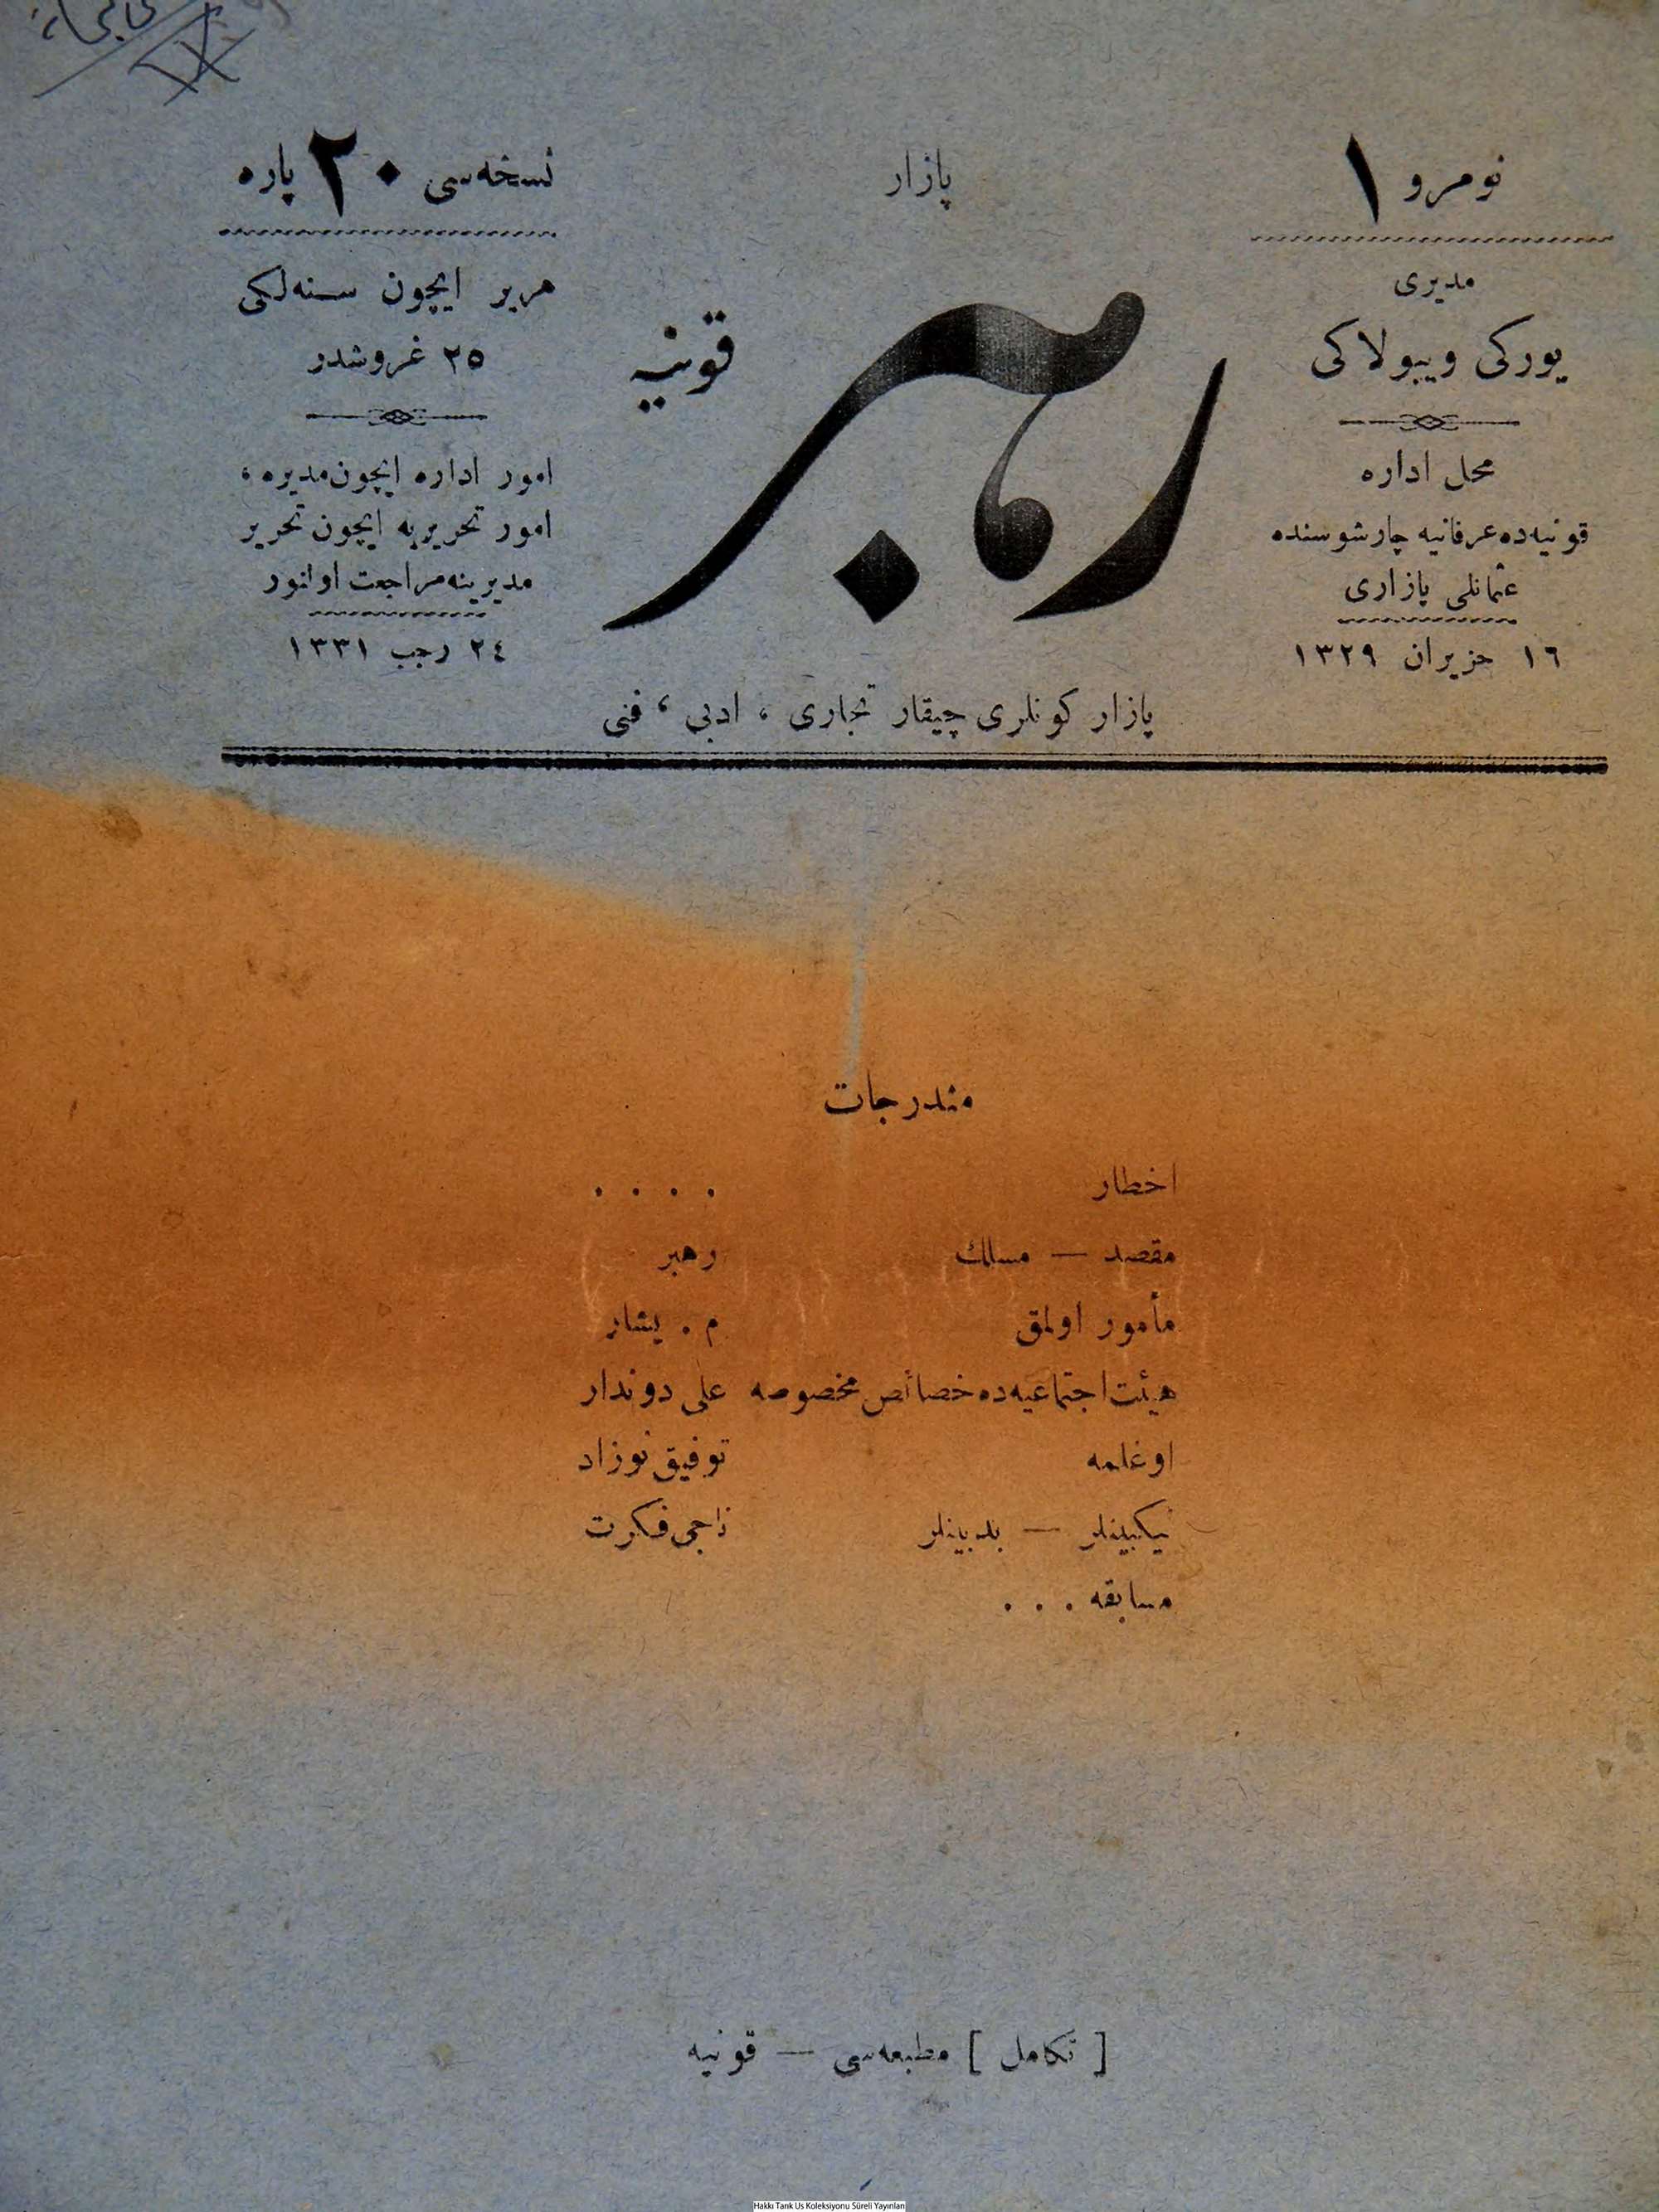 نومرو ١
پازار
نسخه‌سی ٢٠ پاره
مدیری
یورکی ویبولاکی
محل اداره
قونیه‌ده عرفانیه چارشوسنده
عثمانلی پازاری
١٦ حزیران ١٣٢٩
رهبر
قونیه
هربر ایچون سنه‌لکی
٢٥ غروشدر
امور اداره ایچون مدیره ،
امور تحریریه ایچون تحریر
مدیرینه مراجعت اولنور
٢٤ رجب ١٣٣١
پازار کونلری چیقار تجاری ، ادبی ، فنی
مندرجات
اخطار . . . .
مقصد — مسلك رهبر
مأمور اولمق م . یشار
هیئت اجتماعیه‌ده خصائص مخصوصه علی دوندار
اوغلمه توفیق نوزاد
نیکبینلر — بدبینلر ناجی فکرت
مسابقه . . .
[ تکامل ] مطبعه‌سی — قونیه
Hakkı Tarık Us Koleksiyonu Süreli Yayınları